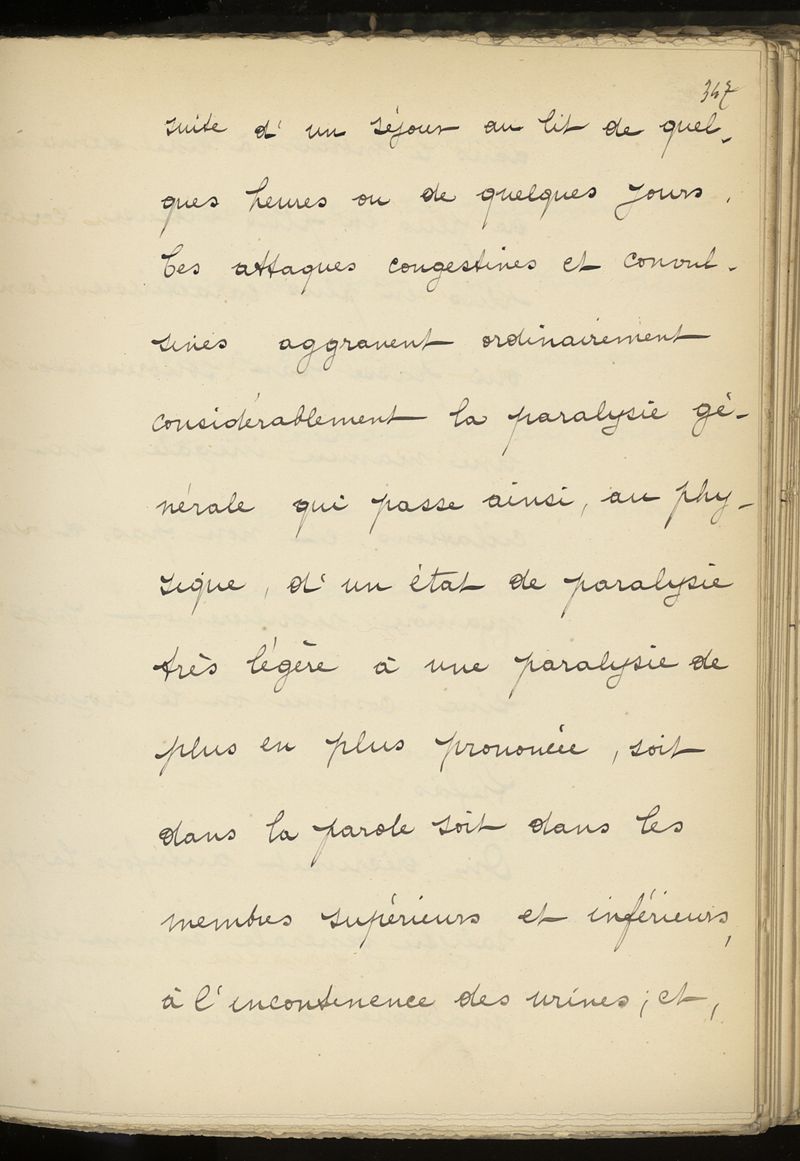 347
suite d'un séjour au lit de quel-
ques heures ou de quelques jours.
Ces attaques congestives et convul-
sives aggravent ordinairement
considérablement la paralysie gé-
nérale qui passe ainsi, au phy-
sique, d'un état de paralysie
très légère à une paralysie de
plus en plus prononcée, soit
dans la parole soit dans les
membres supérieurs et inférieurs,
à l'incontinence des urines; et,